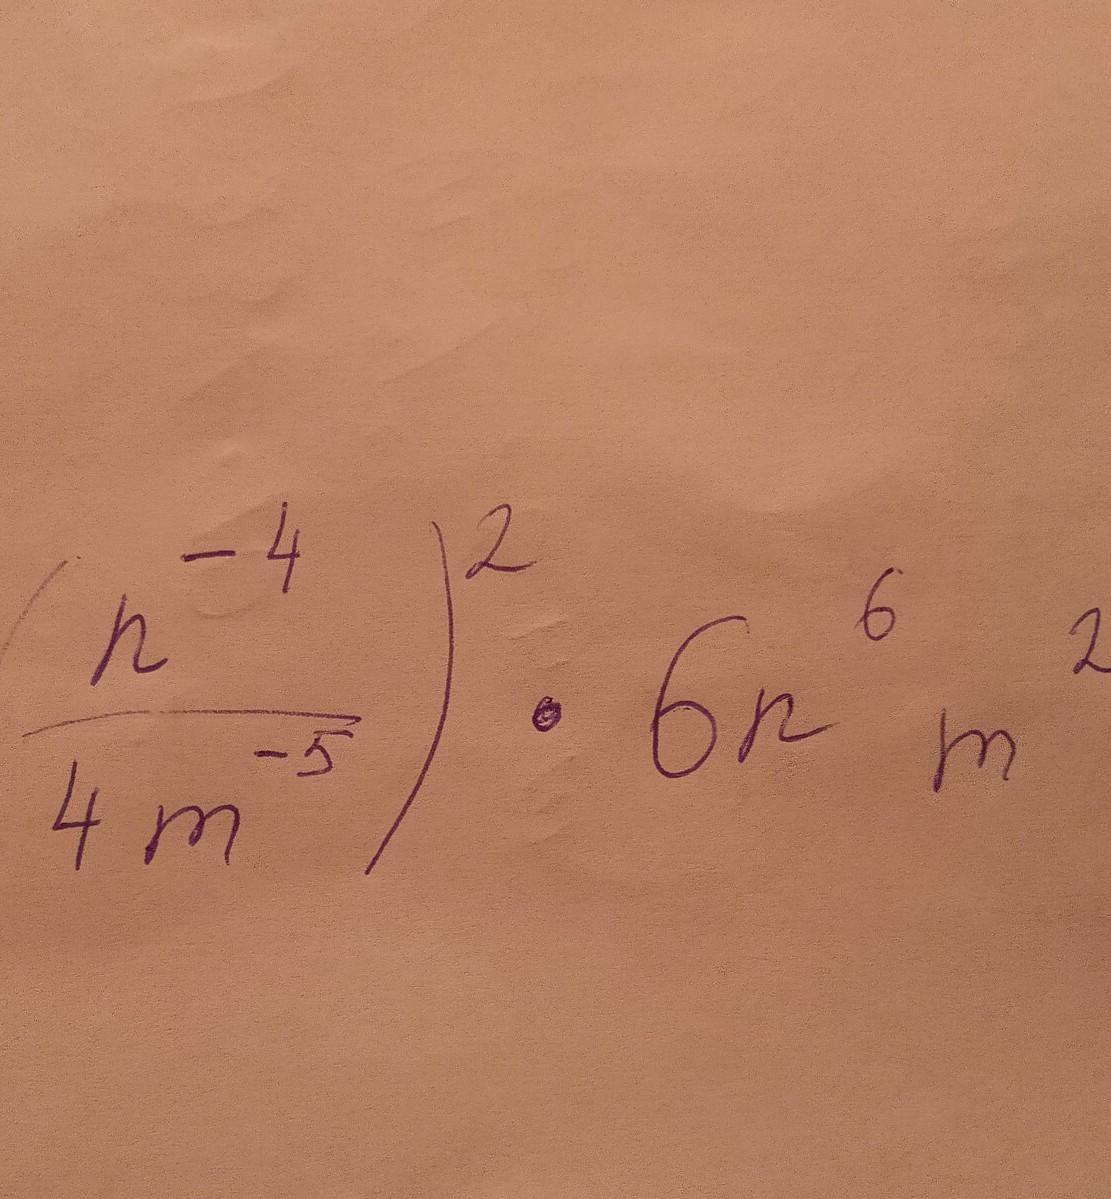 (n⁻⁴ / 4m⁻⁵)² • 6n⁶m²